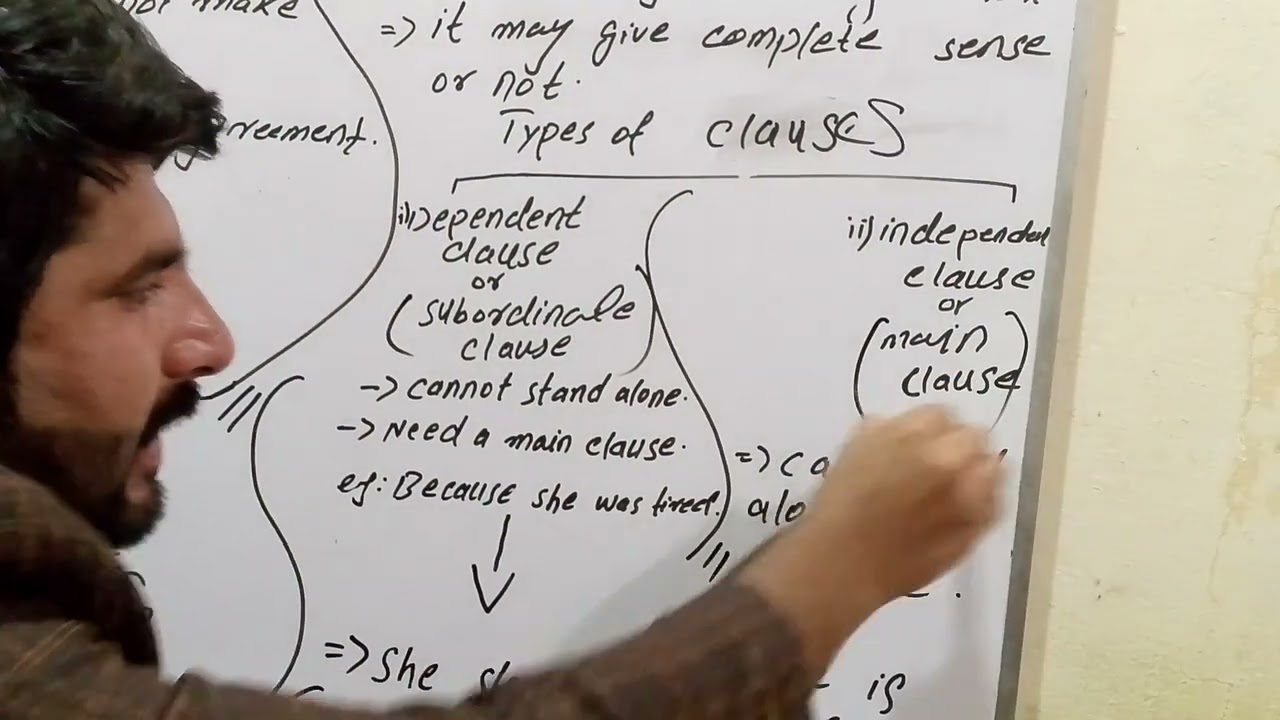 not make
reement.
=> it may give complete sense
or not.
Types of clauses
i) Dependent
clause
or
(subordinate
clause
-> cannot stand alone.
-> Need a main clause.
eg: Because she was tired.
=> She
ii) independent
clause
or
(main
clause)
=> ca
alo
is